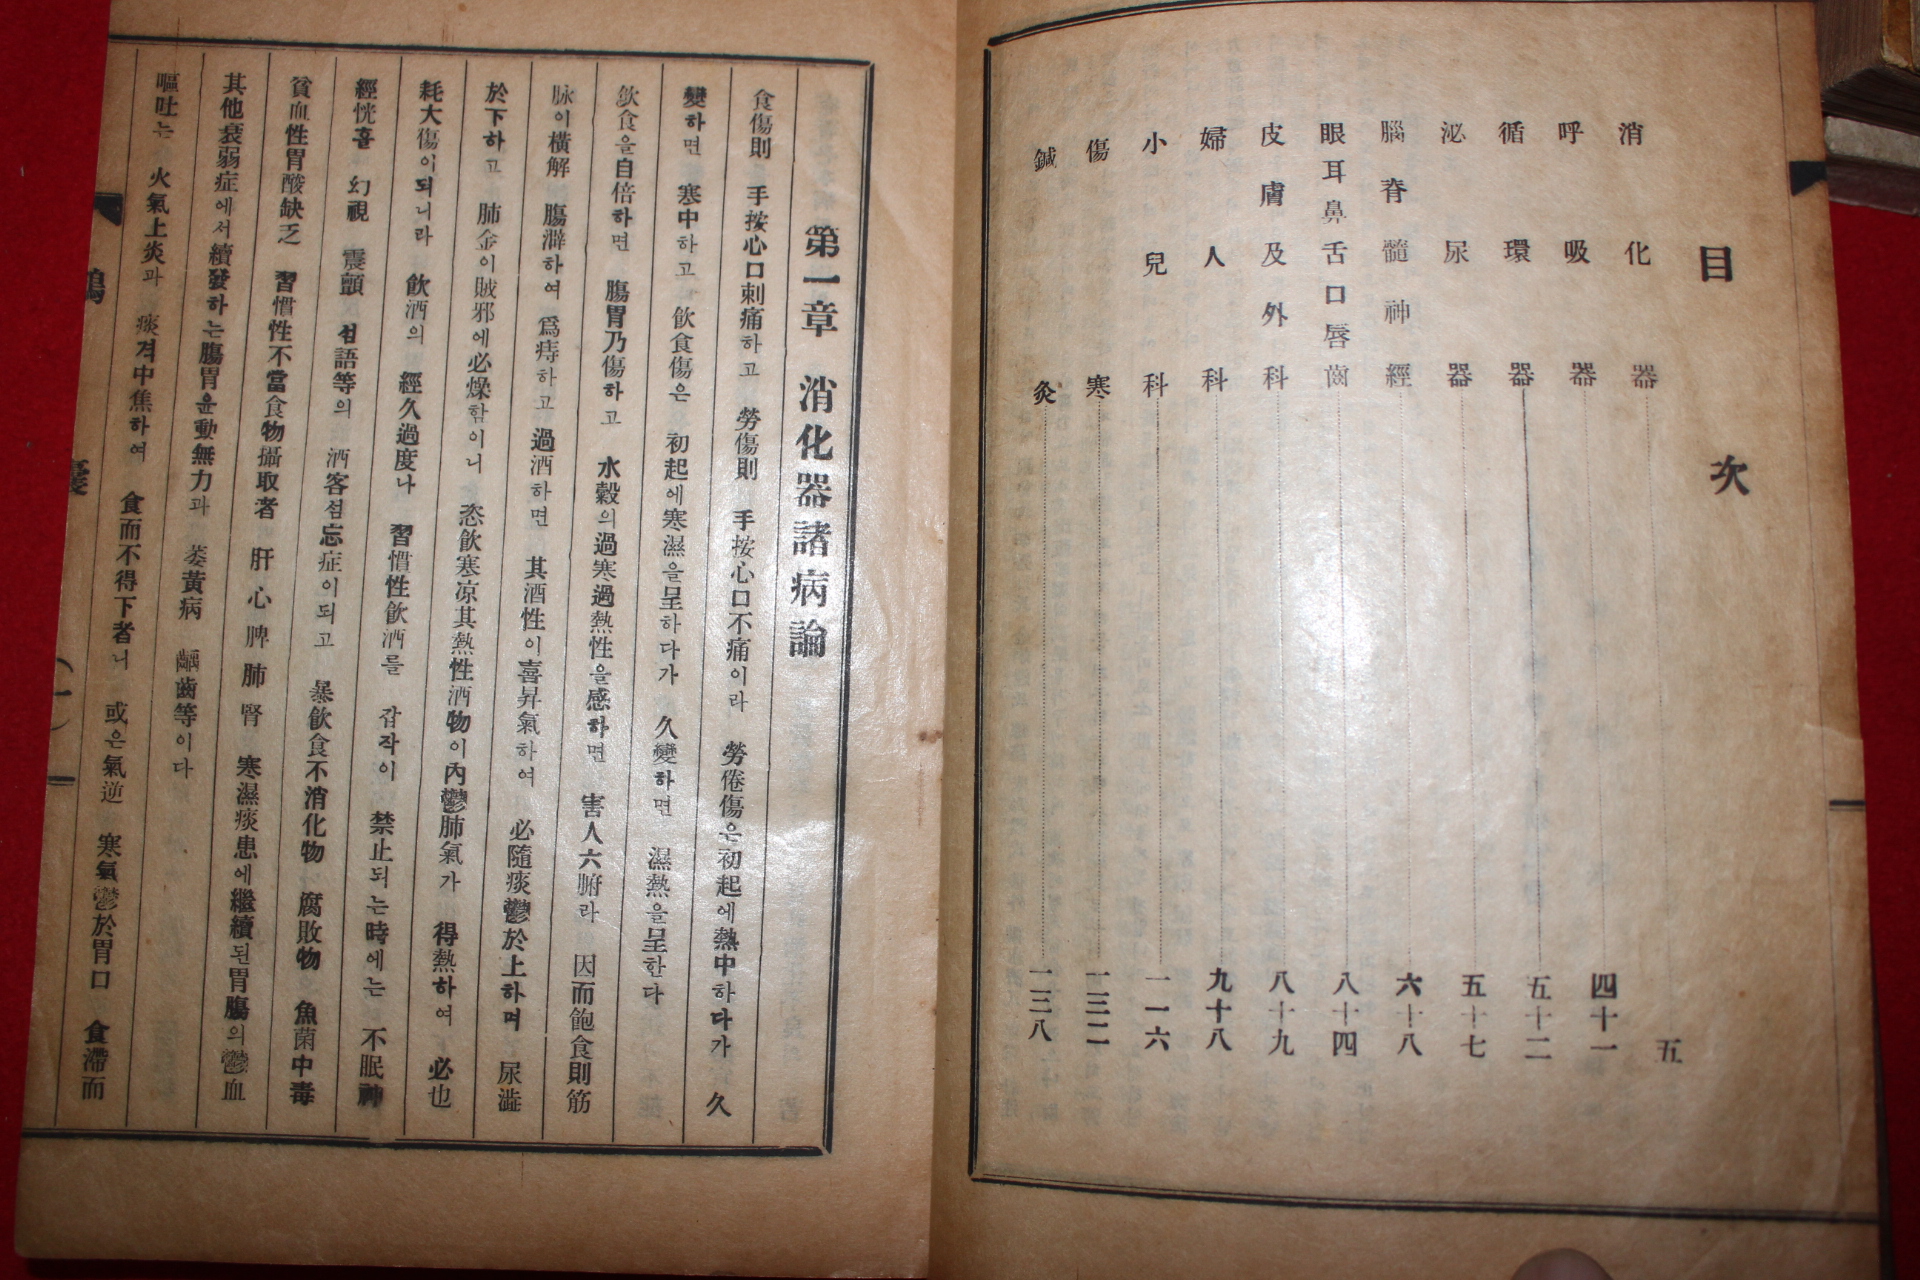 目次
消化器 五
呼吸器 四十一
循環器 五十二
泌尿器 五十七
腦脊髓神經 六十八
眼耳鼻舌口唇齒 八十四
皮膚及外科 八十九
婦人科 九十八
小兒科 一一六
傷寒 一三二
鍼灸 一三八
第一章 消化器諸病論
食傷則 手按心口刺痛하고 勞傷則 手按心口不痛이라 勞倦傷은初起에熱中하다가 久
變하면 寒中하고 飮食傷은 初起에寒濕을呈하다가 久變하면 濕熱을呈한다
飮食을自倍하면 腸胃乃傷하고 水穀의過寒過熱性을感하면 害人六腑라 因而飽食則筋
脉이橫解 腸澼하여 爲痔하고過酒하면 其酒性이喜昇氣하여 必隨痰鬱於上하며 尿澁
於下하고 肺金이賊邪에必燥함이니 恣飮寒凉其熱性酒物이內鬱肺氣가 得熱하여 必也
耗大傷이되니라 飮酒의 經久過度나 習慣性飮酒를 갑작이 禁止되는時에는 不眠神
經恍홀 幻視 震顫 섬語等의 酒客점忘症이되고 暴飮食不消化物 腐敗物 魚菌中毒
貧血性胃酸缺乏 習慣性不當食物攝取者 肝心脾肺腎 寒濕痰患에繼續된胃腸의鬱血
其他衰弱症에서續發하는腸胃운動無力과 萎黃病 齲齒等이다
嘔吐는 火氣上炎과 痰격中焦하여 食而不得下者니 或은氣逆 寒氣鬱於胃口 食滯而
(一)